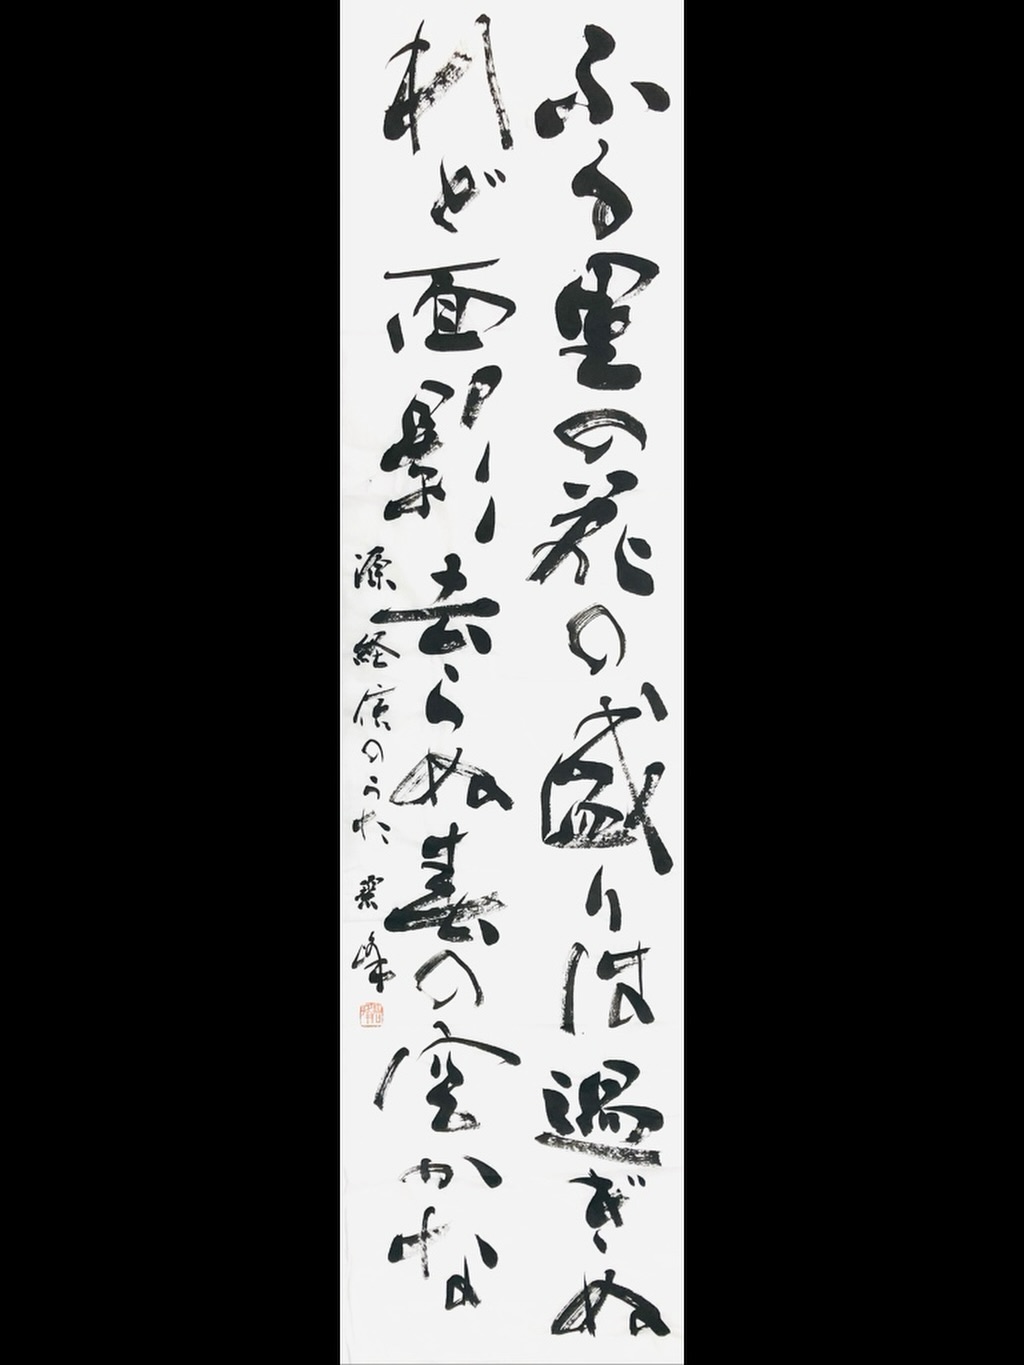 ふる里の花の盛りは過ぎぬ
れど面影去らぬ春の空かな
源経信のうた 峰